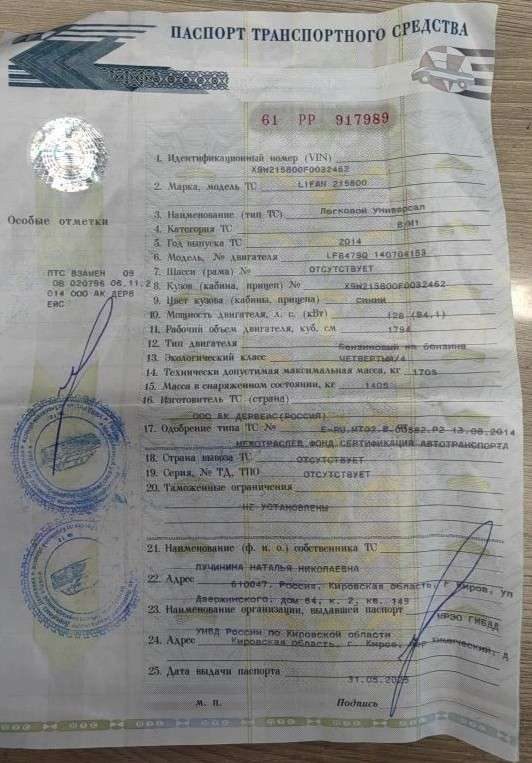 ПАСПОРТ ТРАНСПОРТНОГО СРЕДСТВА
61 РР 917989
1. Идентификационный номер (VIN)
X9W215800F0032462
2. Марка, модель ТС LIFAN 215800
3. Наименование (тип ТС) Легковой Универсал
4. Категория ТС В/М1
5. Год выпуска ТС 2014
6. Модель, № двигателя LFB479Q 140704153
7. Шасси (рама) № ОТСУТСТВУЕТ
8. Кузов (кабина, прицеп) № X9W215800F0032462
9. Цвет кузова (кабины, прицепа) СИНИЙ
10. Мощность двигателя, л. с. (кВт) 128 (94,1)
11. Рабочий объем двигателя, куб. см 1794
12. Тип двигателя Бензиновый на бензине
13. Экологический класс ЧЕТВЕРТЫЙ/4
14. Технически допустимая максимальная масса, кг 1705
15. Масса в снаряженном состоянии, кг 1405
16. Изготовитель ТС (страна)
ООО АК ДЕРВЕЙС(РОССИЯ)
17. Одобрение типа ТС № 13.08.2014
МЕЖОТРАСЛЕВ.ФОНД.СЕРТИФИКАЦИИ АВТОТРАНСПОРТА
18. Страна вывоза ТС ОТСУТСТВУЕТ
19. Серия, № ТД, ТПО ОТСУТСТВУЕТ
20. Таможенные ограничения
НЕ УСТАНОВЛЕНЫ
21. Наименование (ф. и. о.) собственника ТС
ЛУЧИНИНА НАТАЛЬЯ НИКОЛАЕВНА
22. Адрес 610047, Россия, Кировская область, г Киров, ул
Дзержинского, дом 64, к. 2, кв. 149
23. Наименование организации, выдавшей паспорт МРЭО ГИБДД
УМВД России по Кировской области
24. Адрес Кировская область, г. Киров,
25. Дата выдачи паспорта
31.05.2025
М. П. Подпись
Особые отметки
ПТС ВЗАМЕН 09
ОВ 020796 06.11.2
014 ООО АК ДЕРВ
ЕЙС